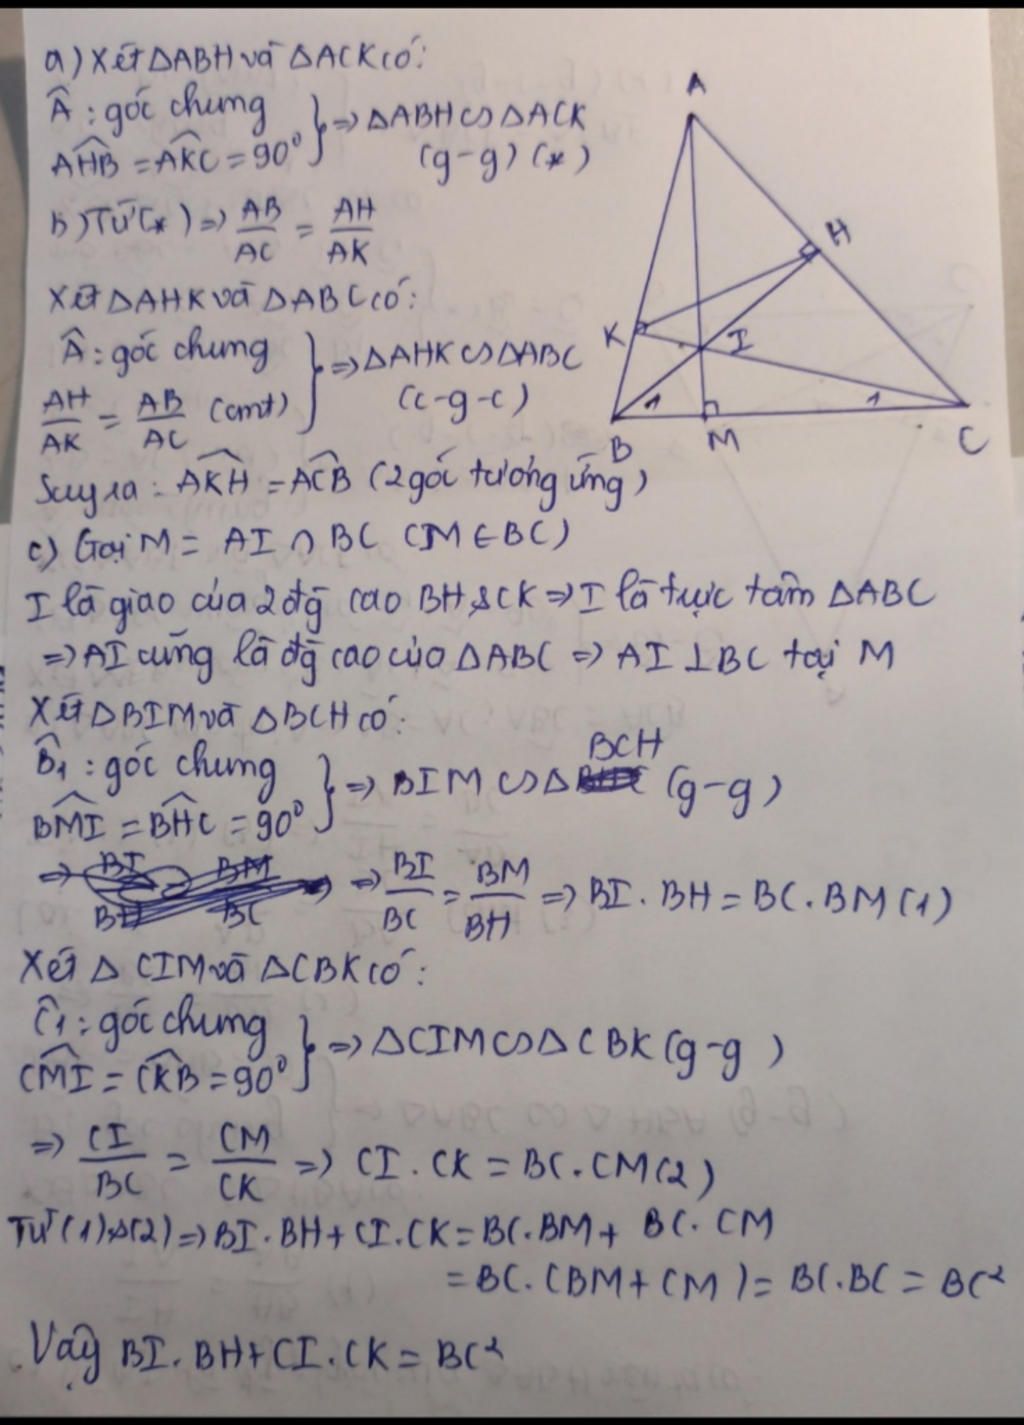 a) Xét ΔABH và ΔACK có:
Â : góc chung
AHB = AKC = 90⁰ } ⇒ ΔABH ∽ ΔACK
(g-g) (*)
b) Từ (*) ⇒ AB/AC = AH/AK
Xét ΔAHK và ΔABC có:
Â : góc chung
AH/AK = AB/AC (cmt) } ⇒ ΔAHK ∽ ΔABC
(c-g-c)
Suy ra: AKH = ACB (2 góc tương ứng)
c) Gọi M = AI ∩ BC (M ∈ BC)
I là giao của 2 đg cao BH & CK ⇒ I là trực tâm ΔABC
⇒ AI cũng là đg cao của ΔABC ⇒ AI ⊥ BC tại M
Xét ΔBIM và ΔBCH có:
B̂1 : góc chung
BMI = BHC = 90⁰ } ⇒ BIM ∽ Δ BCH (g-g)
⇒ BI/BC = BM/BH ⇒ BI . BH = BC . BM (1)
Xét Δ CIM và ΔCBK có:
Ĉ1 : góc chung
CMI = CKB = 90⁰ } ⇒ ΔCIM ∽ ΔCBK (g-g)
⇒ CI/BC = CM/CK ⇒ CI . CK = BC . CM (2)
Từ (1) & (2) ⇒ BI . BH + CI . CK = BC . BM + BC . CM
= BC . (BM + CM) = BC . BC = BC²
Vậy BI . BH + CI . CK = BC²
A
H
K
I
1
1
B
M
C